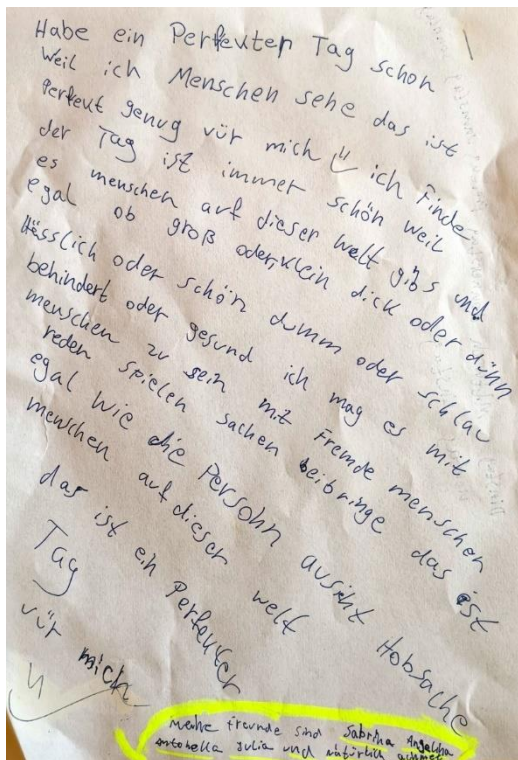 Habe ein Perfeuter Tag schon
weil ich Menschen sehe das ist
Perfeut genug vür mich ich Finde
der Tag ist immer schön weil
es menschen auf dieser welt gibs und
egal ob groß oder klein dick oder dünn
Hässlich oder schön dumm oder schlau
behindert oder gesund ich mag es mit
menschen zu sein mit Fremde menschen
reden spielen sachen beibringe das ist
egal wie die Persohn ausiht Hobsache
menschen auf dieser welt
das ist ein Perfeuter
Tag
vür mich
meine freunde sind Sabrina Angelina
antonella Julia und natürlich